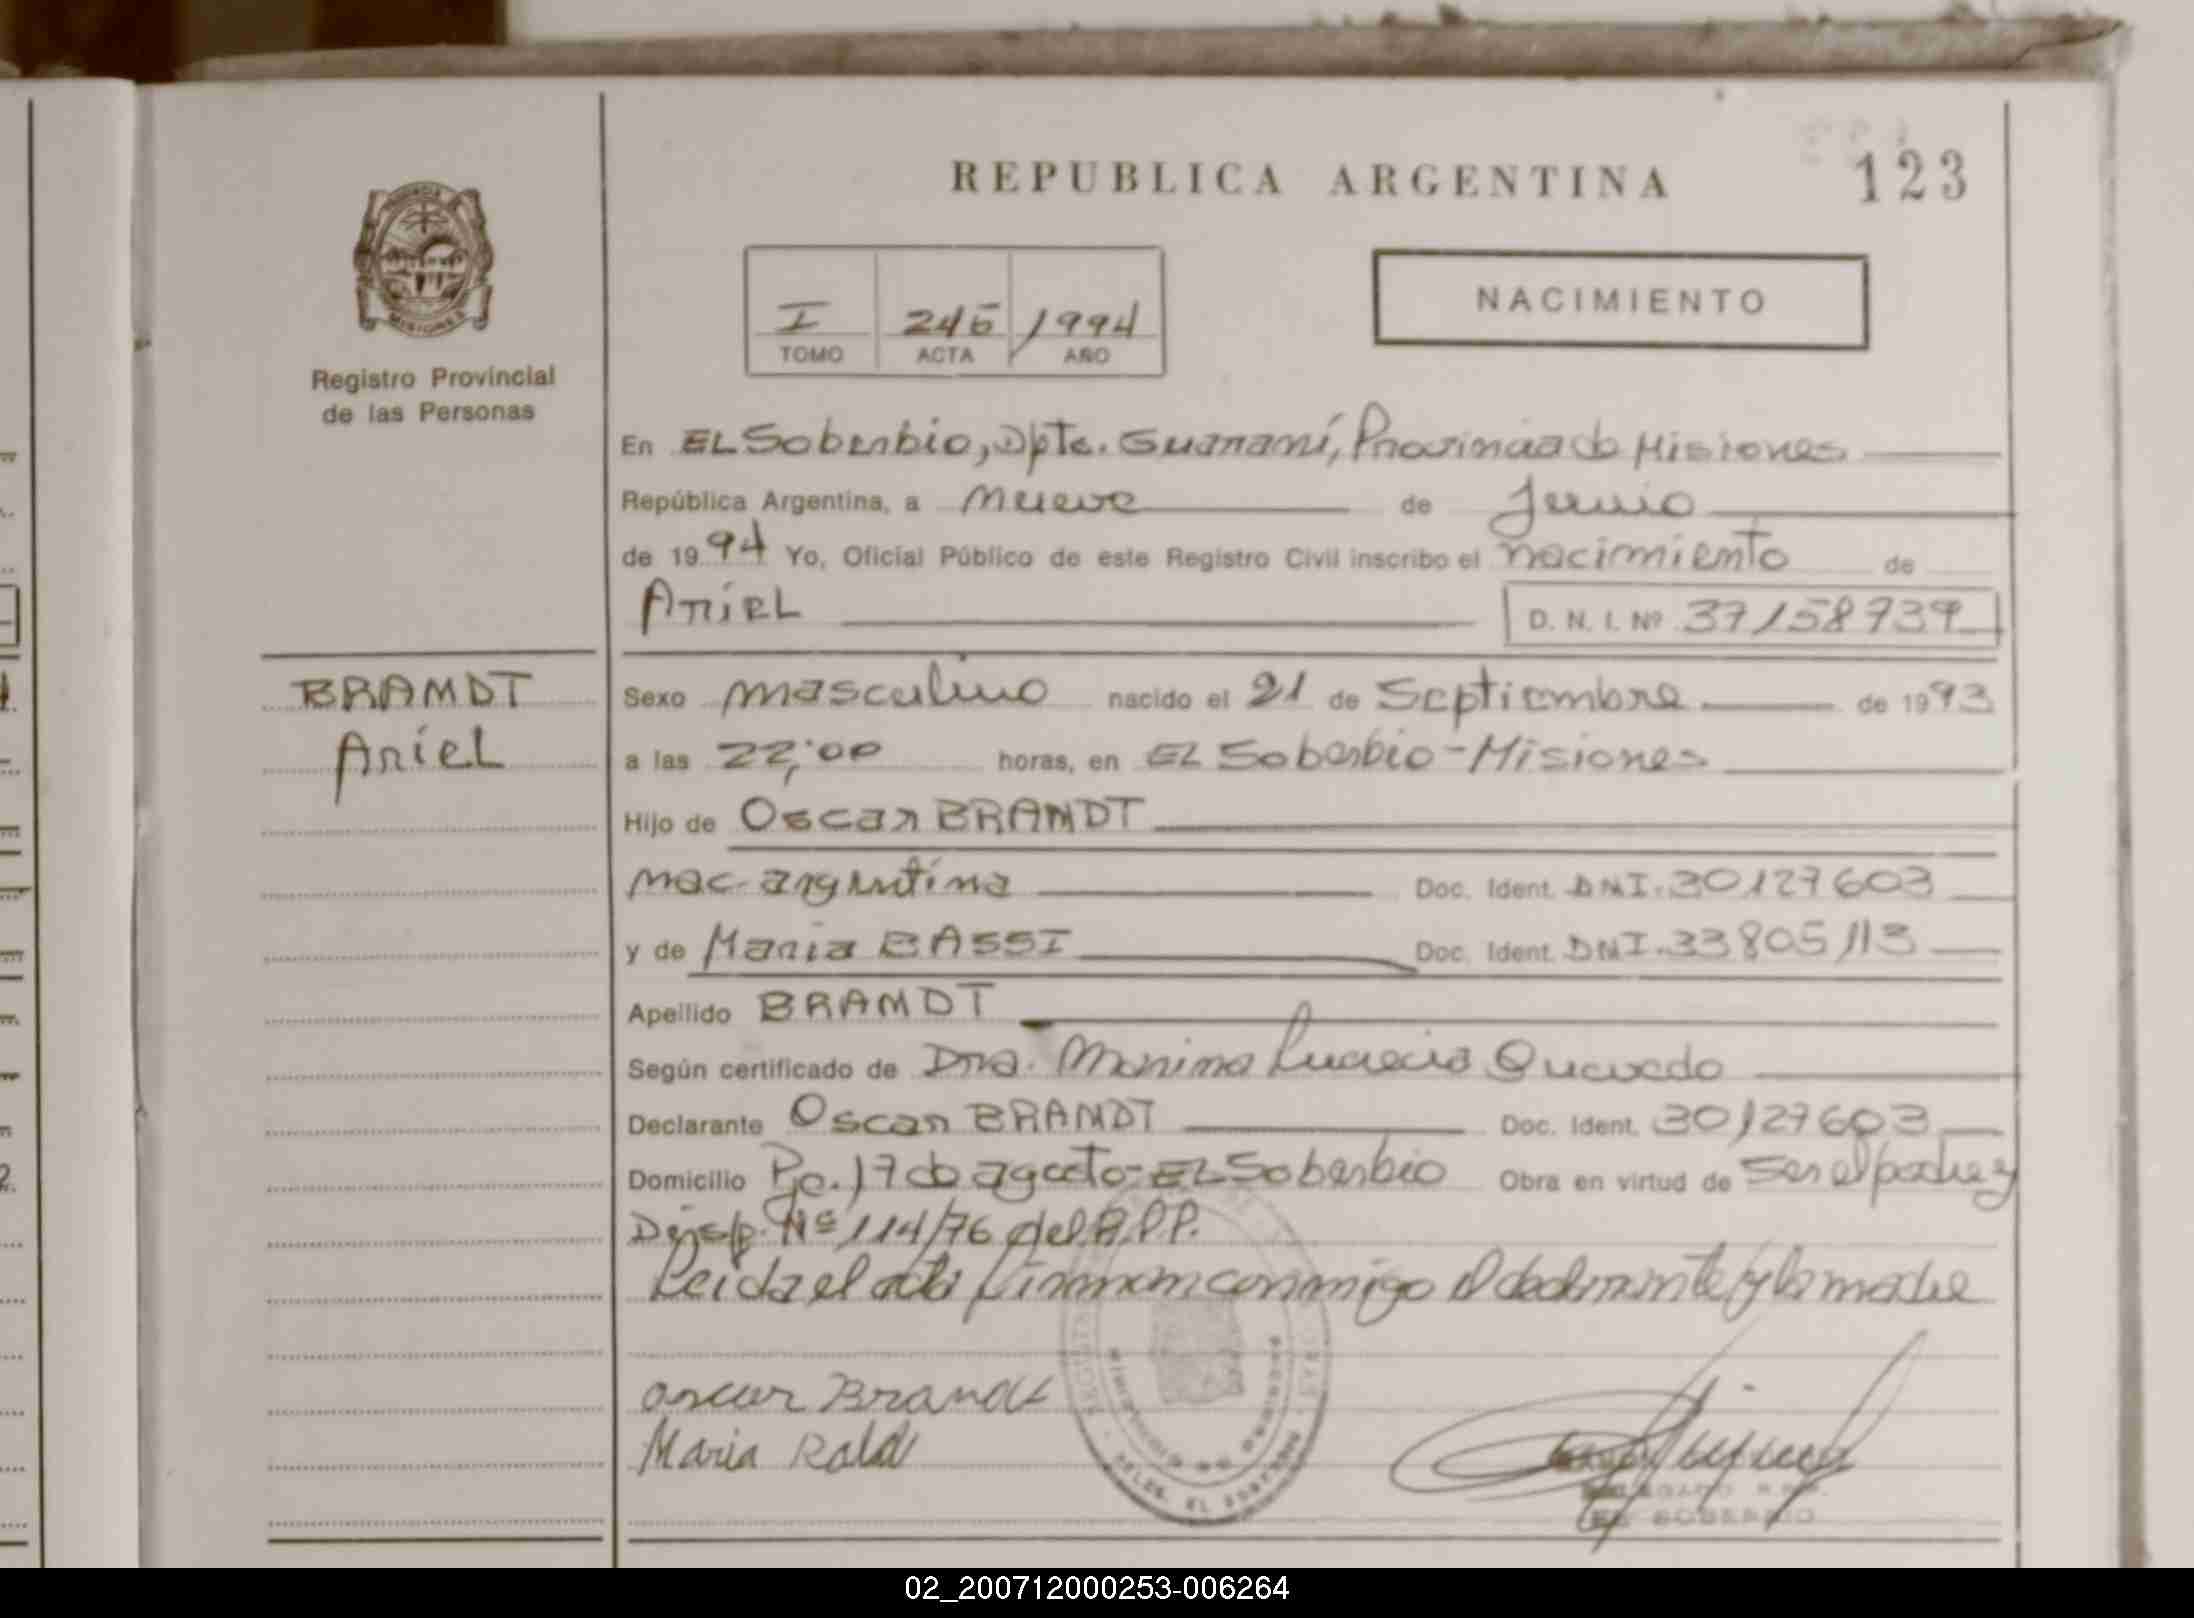 REPUBLICA ARGENTINA
123
MISIONES
Registro Provincial
de las Personas
I 245 1994
TOMO ACTA AÑO
NACIMIENTO
En EL Soberbio, Dpto. Guaraní, Provincia de Misiones
República Argentina, a nueve de Junio
de 1994 Yo, Oficial Público de este Registro Civil inscribo el nacimiento de
Ariel D. N. I. Nº 37158739
BRANDT
Ariel
Sexo masculino nacido el 21 de Septiembre de 1993
a las 22,00 horas, en EL Soberbio-Misiones
Hijo de Oscar BRANDT
nac. argentina Doc. Ident. DNI.30127603
y de Maria BASSI Doc. Ident. DNI.33805113
Apellido BRANDT
Según certificado de Dra. Quevedo
Declarante Oscar BRANDT Doc. Ident. 30127603
Domicilio 17 de agosto-EL Soberbio Obra en virtud de Ser el padre y
Disp. Nº 114/76 del R.P.P.
Leida el acta firman conmigo el declarante y la madre
oscar Brandt
Maria
EL SOBERBIO
02_200712000253-006264